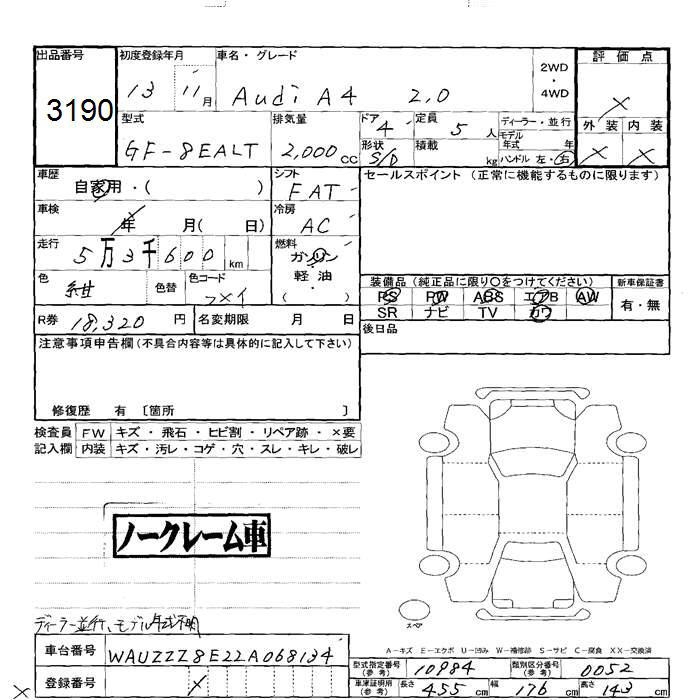 出品番号
3190
初度登録年月
13 11月
車名・グレード
Audi A4 2.0
2WD
・
4WD
評価点
×
外装 内装
× ×
型式
GF-8EALT
排気量
2,000cc
ドア
4
形状
S/D
定員
5人
積載
kg
ディーラー・並行
モデル年式 年
ハンドル 左・右
車歴
自家用・( )
シフト
FAT
車検
年 月( 日)
冷房
AC
走行
5万3千600km
燃料
ガソリン
軽油
( )
色
紺
色替
色コード
フメイ
R券
18,320円
名変期限 月 日
セールスポイント (正常に機能するものに限ります)
装備品 (純正品に限り○をつけてください)
PS PW ABS エアB AW
SR ナビ TV カワ
新車保証書
有・無
後日品
注意事項申告欄(不具合内容等は具体的に記入して下さい)
修復歴 有 〔箇所 〕
検査員記入欄
FW キズ・飛石・ヒビ割・リペア跡・×要
内装 キズ・汚レ・コゲ・穴・スレ・キレ・破レ
ノークレーム車
ディーラー並行、モデル年式不明
車台番号
WAUZZZ8E22A068134
登録番号
×
×
スペア
A-キズ E-エクボ U-凹み W-補修跡 S-サビ C-腐食 XX-交換済
型式指定番号(参考)
10984
類別区分番号(参考)
0052
車庫証明用(参考)
長さ 455cm
幅 176cm
高さ 143cm